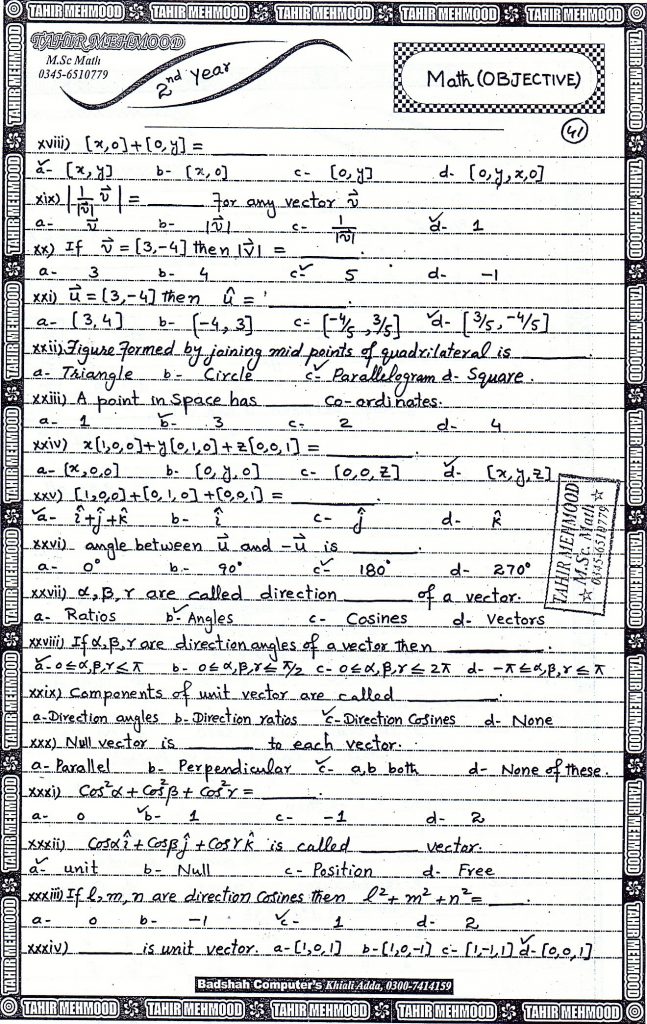 TAHIR MEHMOOD TAHIR MEHMOOD TAHIR MEHMOOD TAHIR MEHMOOD TAHIR MEHMOOD
TAHIR MEHMOOD
M.Sc Math
0345-6510779
2nd year
Math (OBJECTIVE)
41
xviii) [x,0]+[0,y] = ____
✓a- [x,y] b- [x,0] c- [0,y] d- [0,y,x,0]
xix) |1/|v⃗| v⃗| = ____ For any vector v⃗
a- v⃗ b- |v⃗| c- 1/|v⃗| ✓d- 1
xx) If v⃗ = [3,-4] then |v⃗| = ____.
a- 3 b- 4 ✓c- 5 d- -1
xxi) u⃗ = [3,-4] then û = ____.
a- [3,4] b- [-4,3] c- [-4/5, 3/5] ✓d- [3/5, -4/5]
xxii) Figure Formed by joining mid points of quadrilateral is ____.
a- Triangle b- Circle ✓c- Parallelogram d- Square.
xxiii) A point in Space has ____ co-ordinates.
a- 1 ✓b- 3 c- 2 d- 4
xxiv) x[1,0,0]+y[0,1,0]+z[0,0,1] = ____
a- [x,0,0] b- [0,y,0] c- [0,0,z] ✓d- [x,y,z]
xxv) [1,0,0]+[0,1,0]+[0,0,1] = ____
✓a- î+ĵ+k̂ b- î c- ĵ d- k̂
xxvi) angle between u⃗ and -u⃗ is ____.
a- 0° b- 90° ✓c- 180° d- 270°
TAHIR MEHMOOD
☆ M.Sc. Math ☆
☆ 0345-6510779 ☆
xxvii) α,β,r are called direction ____ of a vector.
a- Ratios ✓b- Angles c- Cosines d- Vectors
xxviii) If α,β,r are direction angles of a vector then ____.
✓a- 0≤α,β,r≤π b- 0≤α,β,r≤π/2 c- 0≤α,β,r≤2π d- -π≤α,β,r≤π
xxix) Components of unit vector are called ____.
a- Direction angles b- Direction ratios ✓c- Direction Cosines d- None
xxx) Null vector is ____ to each vector.
a- Parallel b- Perpendicular ✓c- a,b both d- None of these.
xxxi) Cos²α + Cos²β + Cos²r = ____.
a- 0 ✓b- 1 c- -1 d- 2
xxxii) Cosα î + Cosβ ĵ + Cosr k̂ is called ____ vector.
✓a- unit b- Null c- Position d- Free
xxxiii) If l,m,n are direction Cosines then l²+m²+n² = ____.
a- 0 b- -1 ✓c- 1 d- 2
xxxiv) ____ is unit vector. a- [1,0,1] b- [1,0,-1] c- [1,-1,1] ✓d- [0,0,1]
Badshah Computer's Khiali Adda, 0300-7414159
TAHIR MEHMOOD TAHIR MEHMOOD TAHIR MEHMOOD TAHIR MEHMOOD TAHIR MEHMOOD